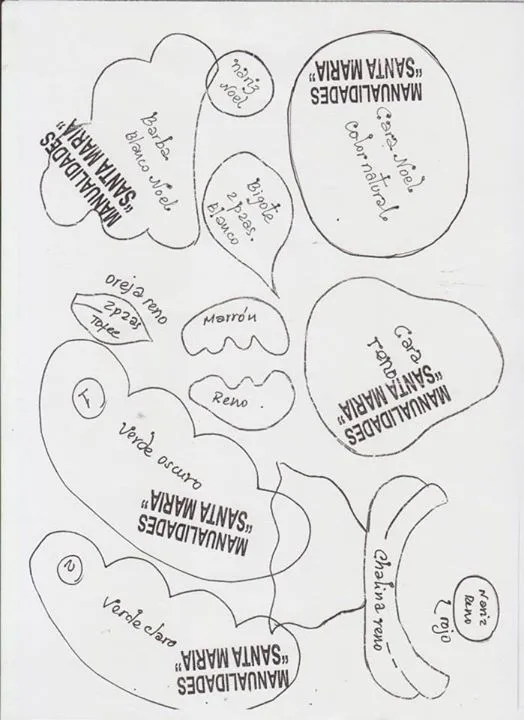 MANUALIDADES
"SANTA MARIA"
Barba
blanco Noel
nariz
Noel
MANUALIDADES
"SANTA MARIA"
Cara Noel
color natural
Bigote
2 pzas.
blanco
oreja reno
2pzas
Marrón
Reno
Cara
reno
MANUALIDADES
"SANTA MARIA"
1
Verde oscuro
MANUALIDADES
"SANTA MARIA"
2
Verde claro
MANUALIDADES
"SANTA MARIA"
Chalina reno
Nariz
Reno
rojo